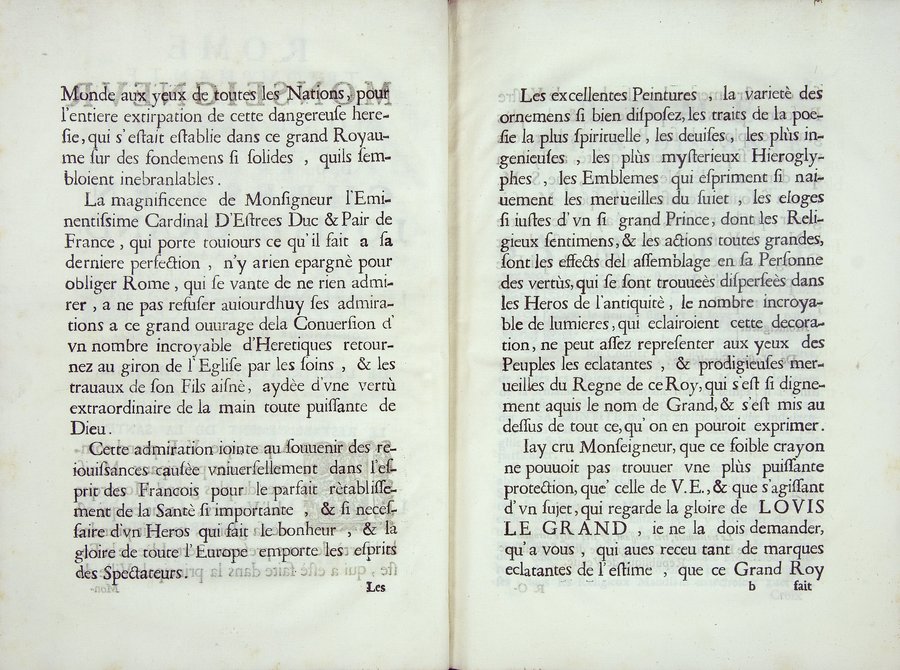 Monde aux yeux de toutes les Nations, pour
l'entiere extirpation de cette dangereuſe here-
ſie, qui s'eſtait eſtablie dans ce grand Royau-
me ſur des fondemens ſi ſolides , quils ſem-
bloient inebranlables .
La magnificence de Monſigneur l'Emi-
nentiſſime Cardinal D'Eſtrees Duc & Pair de
France , qui porte touiours ce qu'il fait a ſa
derniere perfection , n'y arien epargnè pour
obliger Rome , qui ſe vante de ne rien admi-
rer , a ne pas refuſer auiourdhuy ſes admira-
tions a ce grand ouurage dela Conuerſion d'
vn nombre incroyable d'Heretiques retour-
nez au giron de l'Egliſe par les ſoins , & les
trauaux de ſon Fils aiſnè, aydèe d'vne vertù
extraordinaire de la main toute puiſſante de
Dieu .
Cette admiration iointe au ſouuenir des re-
iouiſſances cauſèe vniuerſellement dans l'eſ-
prit des Francois pour le parfait rètabliſſe-
ment de la Santè ſi importante , & ſi neceſ-
ſaire d'vn Heros qui fait le bonheur , & la
gloire de toute l'Europe emporte les eſprits
des Spectateurs .
Les
Les excellentes Peintures , la varietè des
ornemens ſi bien diſpoſez, les traits de la poe-
ſie la plus ſpirituelle , les deuiſes , les plùs in-
genieuſes , les plùs myſterieux Hierogly-
phes , les Emblemes qui eſpriment ſi nai-
uement les merueilles du ſuiet , les eloges
ſi iuſtes d'vn ſi grand Prince, dont les Reli-
gieux ſentimens, & les actions toutes grandes,
ſont les effects del aſſemblage en ſa Perſonne
des vertùs, qui ſe ſont trouueès diſperſeès dans
les Heros de l'antiquitè , le nombre incroya-
ble de lumieres, qui eclairoient cette decora-
tion, ne peut aſſez repreſenter aux yeux des
Peuples les eclatantes , & prodigieuſes mer-
ueilles du Regne de ce Roy, qui s'eſt ſi digne-
ment aquis le nom de Grand, & s'eſt mis au
deſſus de tout ce, qu' on en pouroit exprimer .
Iay cru Monſeigneur, que ce foible crayon
ne pouuoit pas trouuer vne plùs puiſſante
protection, que' celle de V.E., & que s'agiſſant
d'vn ſujet, qui regarde la gloire de LOVIS
LE GRAND , ie ne la dois demander,
qu' a vous , qui aues receu tant de marques
eclatantes de l'eſtime , que ce Grand Roy
b fait